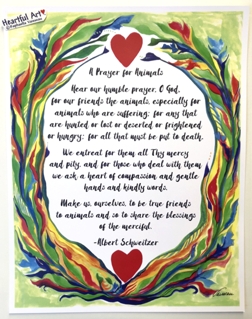 Heartful Art
A Prayer for Animals
Hear our humble prayer, O God,
for our friends the animals, especially for
animals who are suffering; for any that
are hunted or lost or deserted or frightened
or hungry; for all that must be put to death.
We entreat for them all Thy mercy
and pity, and for those who deal with them
we ask a heart of compassion and gentle
hands and kindly words.
Make us, ourselves, to be true friends
to animals and so to share the blessings
of the merciful.
-Albert Schweitzer